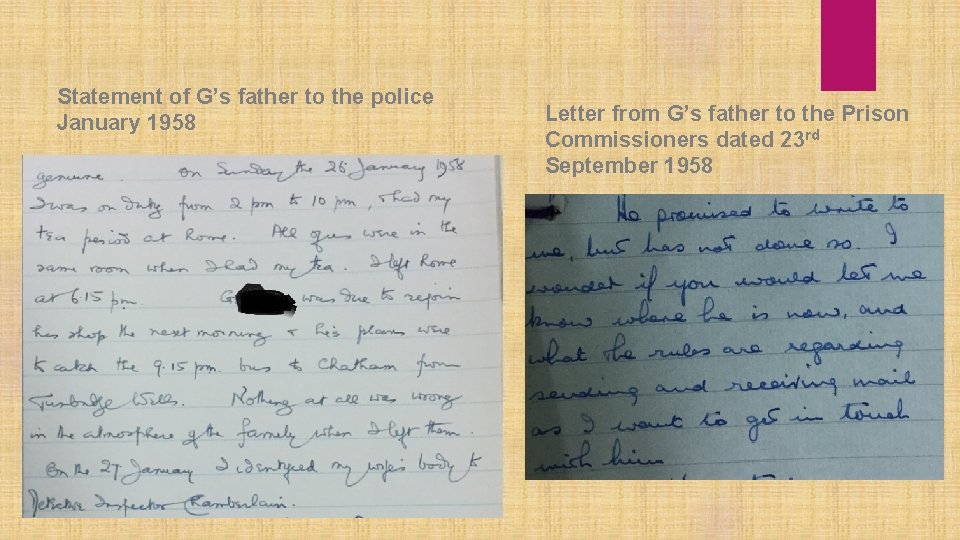 Statement of G's father to the police
January 1958
genuine. On Sunday the 26 January 1958
I was on duty from 2 pm to 10 pm, I had my
tea period at home. All of us were in the
same room when I had my tea. I left home
at 6.15 pm. G was due to rejoin
his ship the next morning & his plans were
to catch the 9.15 pm. bus to Chatham from
Tunbridge Wells. Nothing at all was wrong
in the atmosphere of the family when I left them.
On the 27 January I identified my wife's body to
Detective Inspector Chamberlain.
Letter from G's father to the Prison
Commissioners dated 23rd
September 1958
He promised to write to
me, but has not done so. I
wonder if you would let me
know where he is now, and
what the rules are regarding
sending and receiving mail
as I want to get in touch
with him